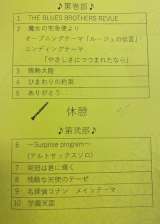 ♪第壱部♪
1 THE BLUES BROTHERS REVUE
2 魔女の宅急便より
オープニングテーマ「ルージュの伝言」
エンディングテーマ
「やさしさにつつまれたなら」
3 情熱大陸
4 ひまわりの約束
5 ありがとう
休憩
♪第弐部♪
6 ～Surprise program～
(アルトサックスソロ)
7 栄冠は君に輝く
8 残酷な天使のテーゼ
9 名探偵コナン メインテーマ
10 学園天国